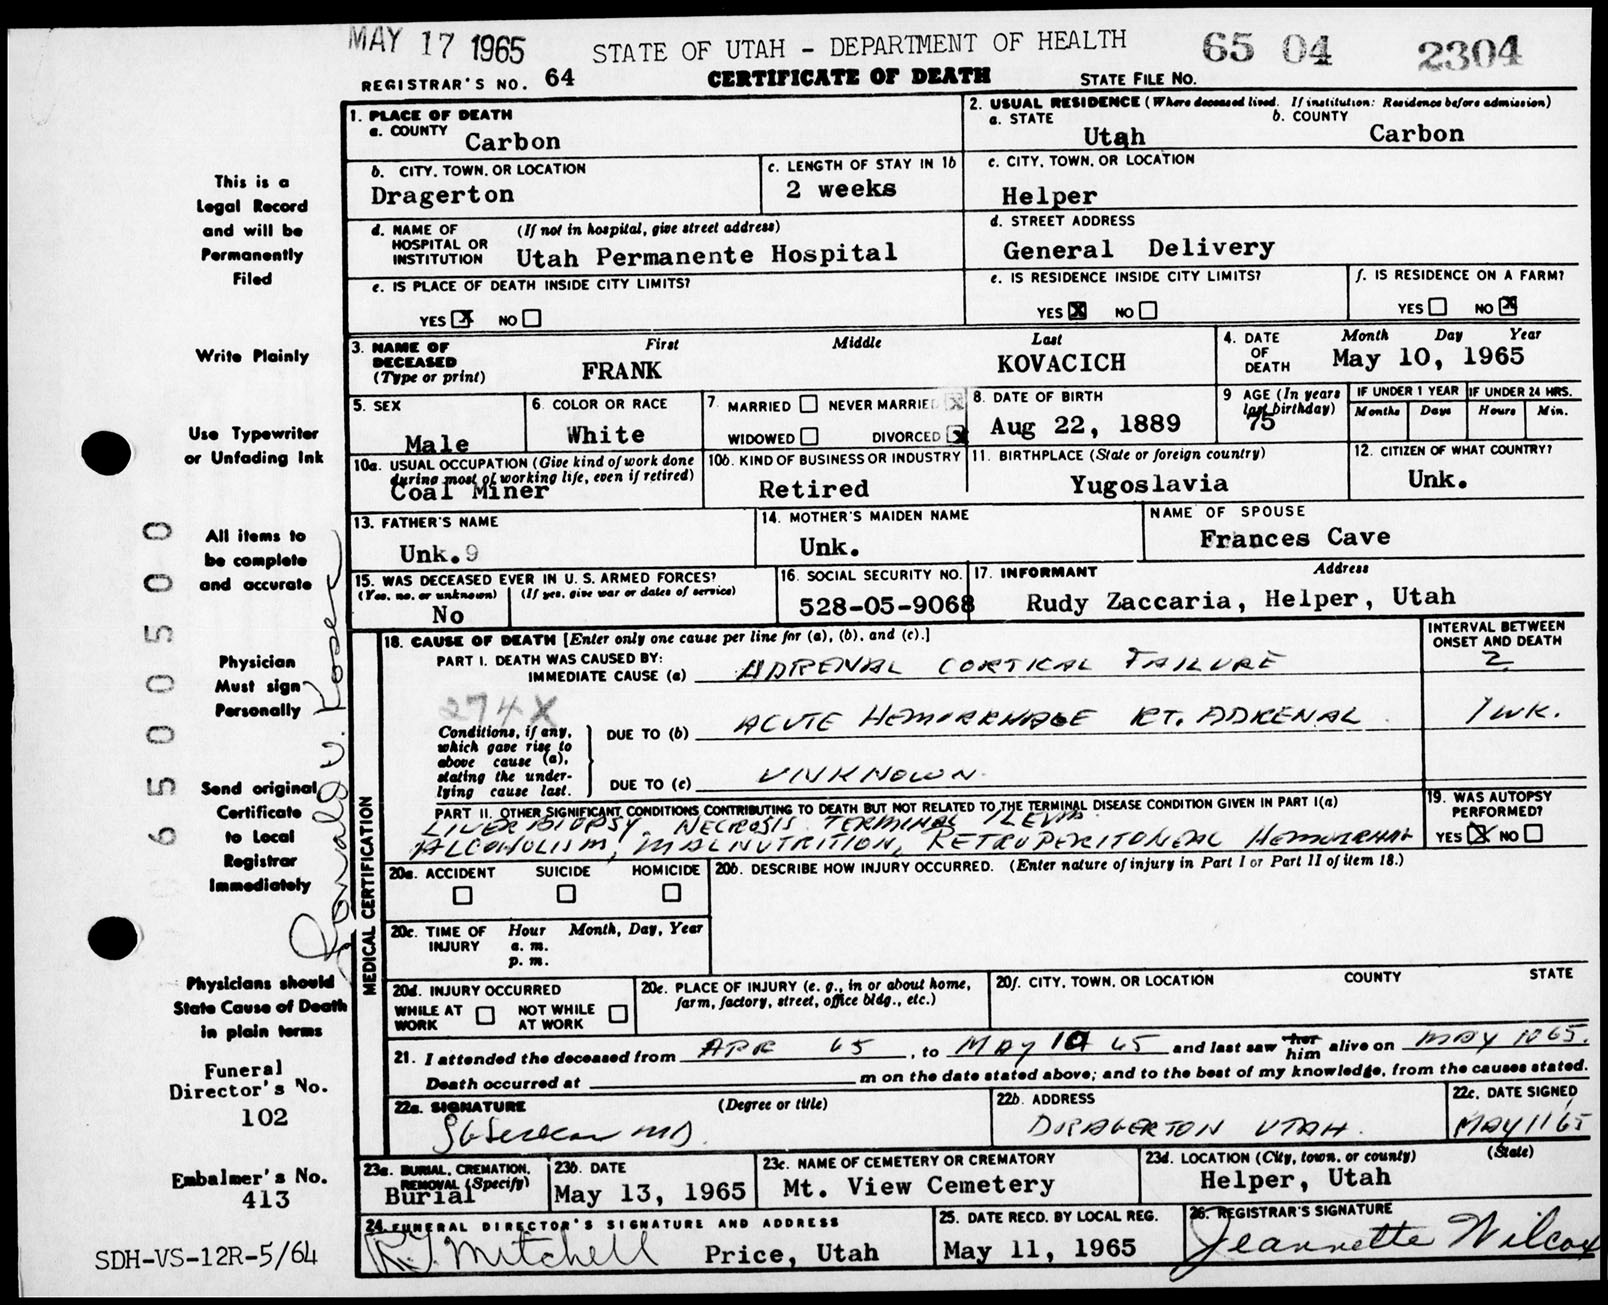 MAY 17 1965 STATE OF UTAH - DEPARTMENT OF HEALTH 65 04 2304
REGISTRAR'S NO. 64 CERTIFICATE OF DEATH STATE FILE NO.
1. PLACE OF DEATH
a. COUNTY Carbon
2. USUAL RESIDENCE (Where deceased lived. If institution: Residence before admission)
a. STATE Utah b. COUNTY Carbon
b. CITY, TOWN, OR LOCATION Dragerton
c. LENGTH OF STAY IN 1b 2 weeks
c. CITY, TOWN, OR LOCATION Helper
d. NAME OF HOSPITAL OR INSTITUTION (If not in hospital, give street address) Utah Permanente Hospital
d. STREET ADDRESS General Delivery
e. IS PLACE OF DEATH INSIDE CITY LIMITS?
YES X NO
e. IS RESIDENCE INSIDE CITY LIMITS?
YES X NO
f. IS RESIDENCE ON A FARM?
YES NO X
3. NAME OF DECEASED (Type or print)
First Middle Last
FRANK KOVACICH
4. DATE OF DEATH Month Day Year
May 10, 1965
5. SEX Male
6. COLOR OR RACE White
7. MARRIED NEVER MARRIED X
WIDOWED DIVORCED X
8. DATE OF BIRTH Aug 22, 1889
9 AGE (In years last birthday) 75
IF UNDER 1 YEAR Months Days
IF UNDER 24 HRS. Hours Min.
10a. USUAL OCCUPATION (Give kind of work done during most of working life, even if retired) Coal Miner
10b. KIND OF BUSINESS OR INDUSTRY Retired
11. BIRTHPLACE (State or foreign country) Yugoslavia
12. CITIZEN OF WHAT COUNTRY? Unk.
13. FATHER'S NAME Unk. 9
14. MOTHER'S MAIDEN NAME Unk.
NAME OF SPOUSE Frances Cave
15. WAS DECEASED EVER IN U. S. ARMED FORCES?
(Yes, no, or unknown) (If yes, give war or dates of service)
No
16. SOCIAL SECURITY NO. 528-05-9068
17. INFORMANT Address
Rudy Zaccaria, Helper, Utah
MEDICAL CERTIFICATION
18. CAUSE OF DEATH [Enter only one cause per line for (a), (b), and (c).]
INTERVAL BETWEEN ONSET AND DEATH
PART I. DEATH WAS CAUSED BY:
IMMEDIATE CAUSE (a) ADRENAL CORTICAL FAILURE 2
274X
Conditions, if any, which gave rise to above cause (a), stating the underlying cause last.
DUE TO (b) ACUTE HEMORRHAGE RT. ADRENAL 1 WK.
DUE TO (c) UNKNOWN
PART II. OTHER SIGNIFICANT CONDITIONS CONTRIBUTING TO DEATH BUT NOT RELATED TO THE TERMINAL DISEASE CONDITION GIVEN IN PART I(a)
LIVER BIOPSY, NECROSIS TERMINAL ILEUM
ALCOHOLISM, MALNUTRITION, RETROPERITONEAL
19. WAS AUTOPSY PERFORMED?
YES X NO
20a. ACCIDENT SUICIDE HOMICIDE
20b. DESCRIBE HOW INJURY OCCURRED. (Enter nature of injury in Part I or Part II of item 18.)
20c. TIME OF INJURY Hour a. m. p. m. Month, Day, Year
20d. INJURY OCCURRED
WHILE AT WORK NOT WHILE AT WORK
20e. PLACE OF INJURY (e. g., in or about home, farm, factory, street, office bldg., etc.)
20f. CITY, TOWN, OR LOCATION COUNTY STATE
21. I attended the deceased from APR 65, to MAY 10 65 and last saw her him alive on MAY 10 65.
Death occurred at m on the date stated above; and to the best of my knowledge, from the causes stated.
22a. SIGNATURE (Degree or title)
MD.
22b. ADDRESS DRAGERTON UTAH.
22c. DATE SIGNED MAY 11 65
23a. BURIAL, CREMATION, REMOVAL (Specify) Burial
23b. DATE May 13, 1965
23c. NAME OF CEMETERY OR CREMATORY Mt. View Cemetery
23d. LOCATION (City, town, or county) (State)
Helper, Utah
24 FUNERAL DIRECTOR'S SIGNATURE AND ADDRESS
R.J. Mitchell Price, Utah
25. DATE RECD. BY LOCAL REG. May 11, 1965
26. REGISTRAR'S SIGNATURE Jeannette Wilcox
This is a
Legal Record
and will be
Permanently
Filed
Write Plainly
Use Typewriter
or Unfading Ink
All items to
be complete
and accurate
Physician
Must sign
Personally
Send original
Certificate
to Local
Registrar
Immediately
Physicians should
State Cause of Death
in plain terms
Funeral
Director's No.
102
Embalmer's No.
413
SDH-VS-12R-5/64
6500500